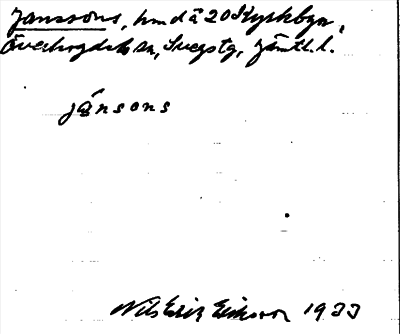 Janssons, hmd å 20 Kyrkbyn,
Överhogdals sn, Svegs tg, Jämtl. l.
jánsons
Nils Erik Eriksson 1933